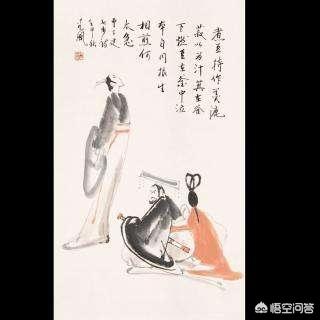 煮豆持作羹漉
菽以为汁萁在釜
下燃豆在釜中泣
本自同根生
相煎何
太急
曹子建
七步诗
悟空问答